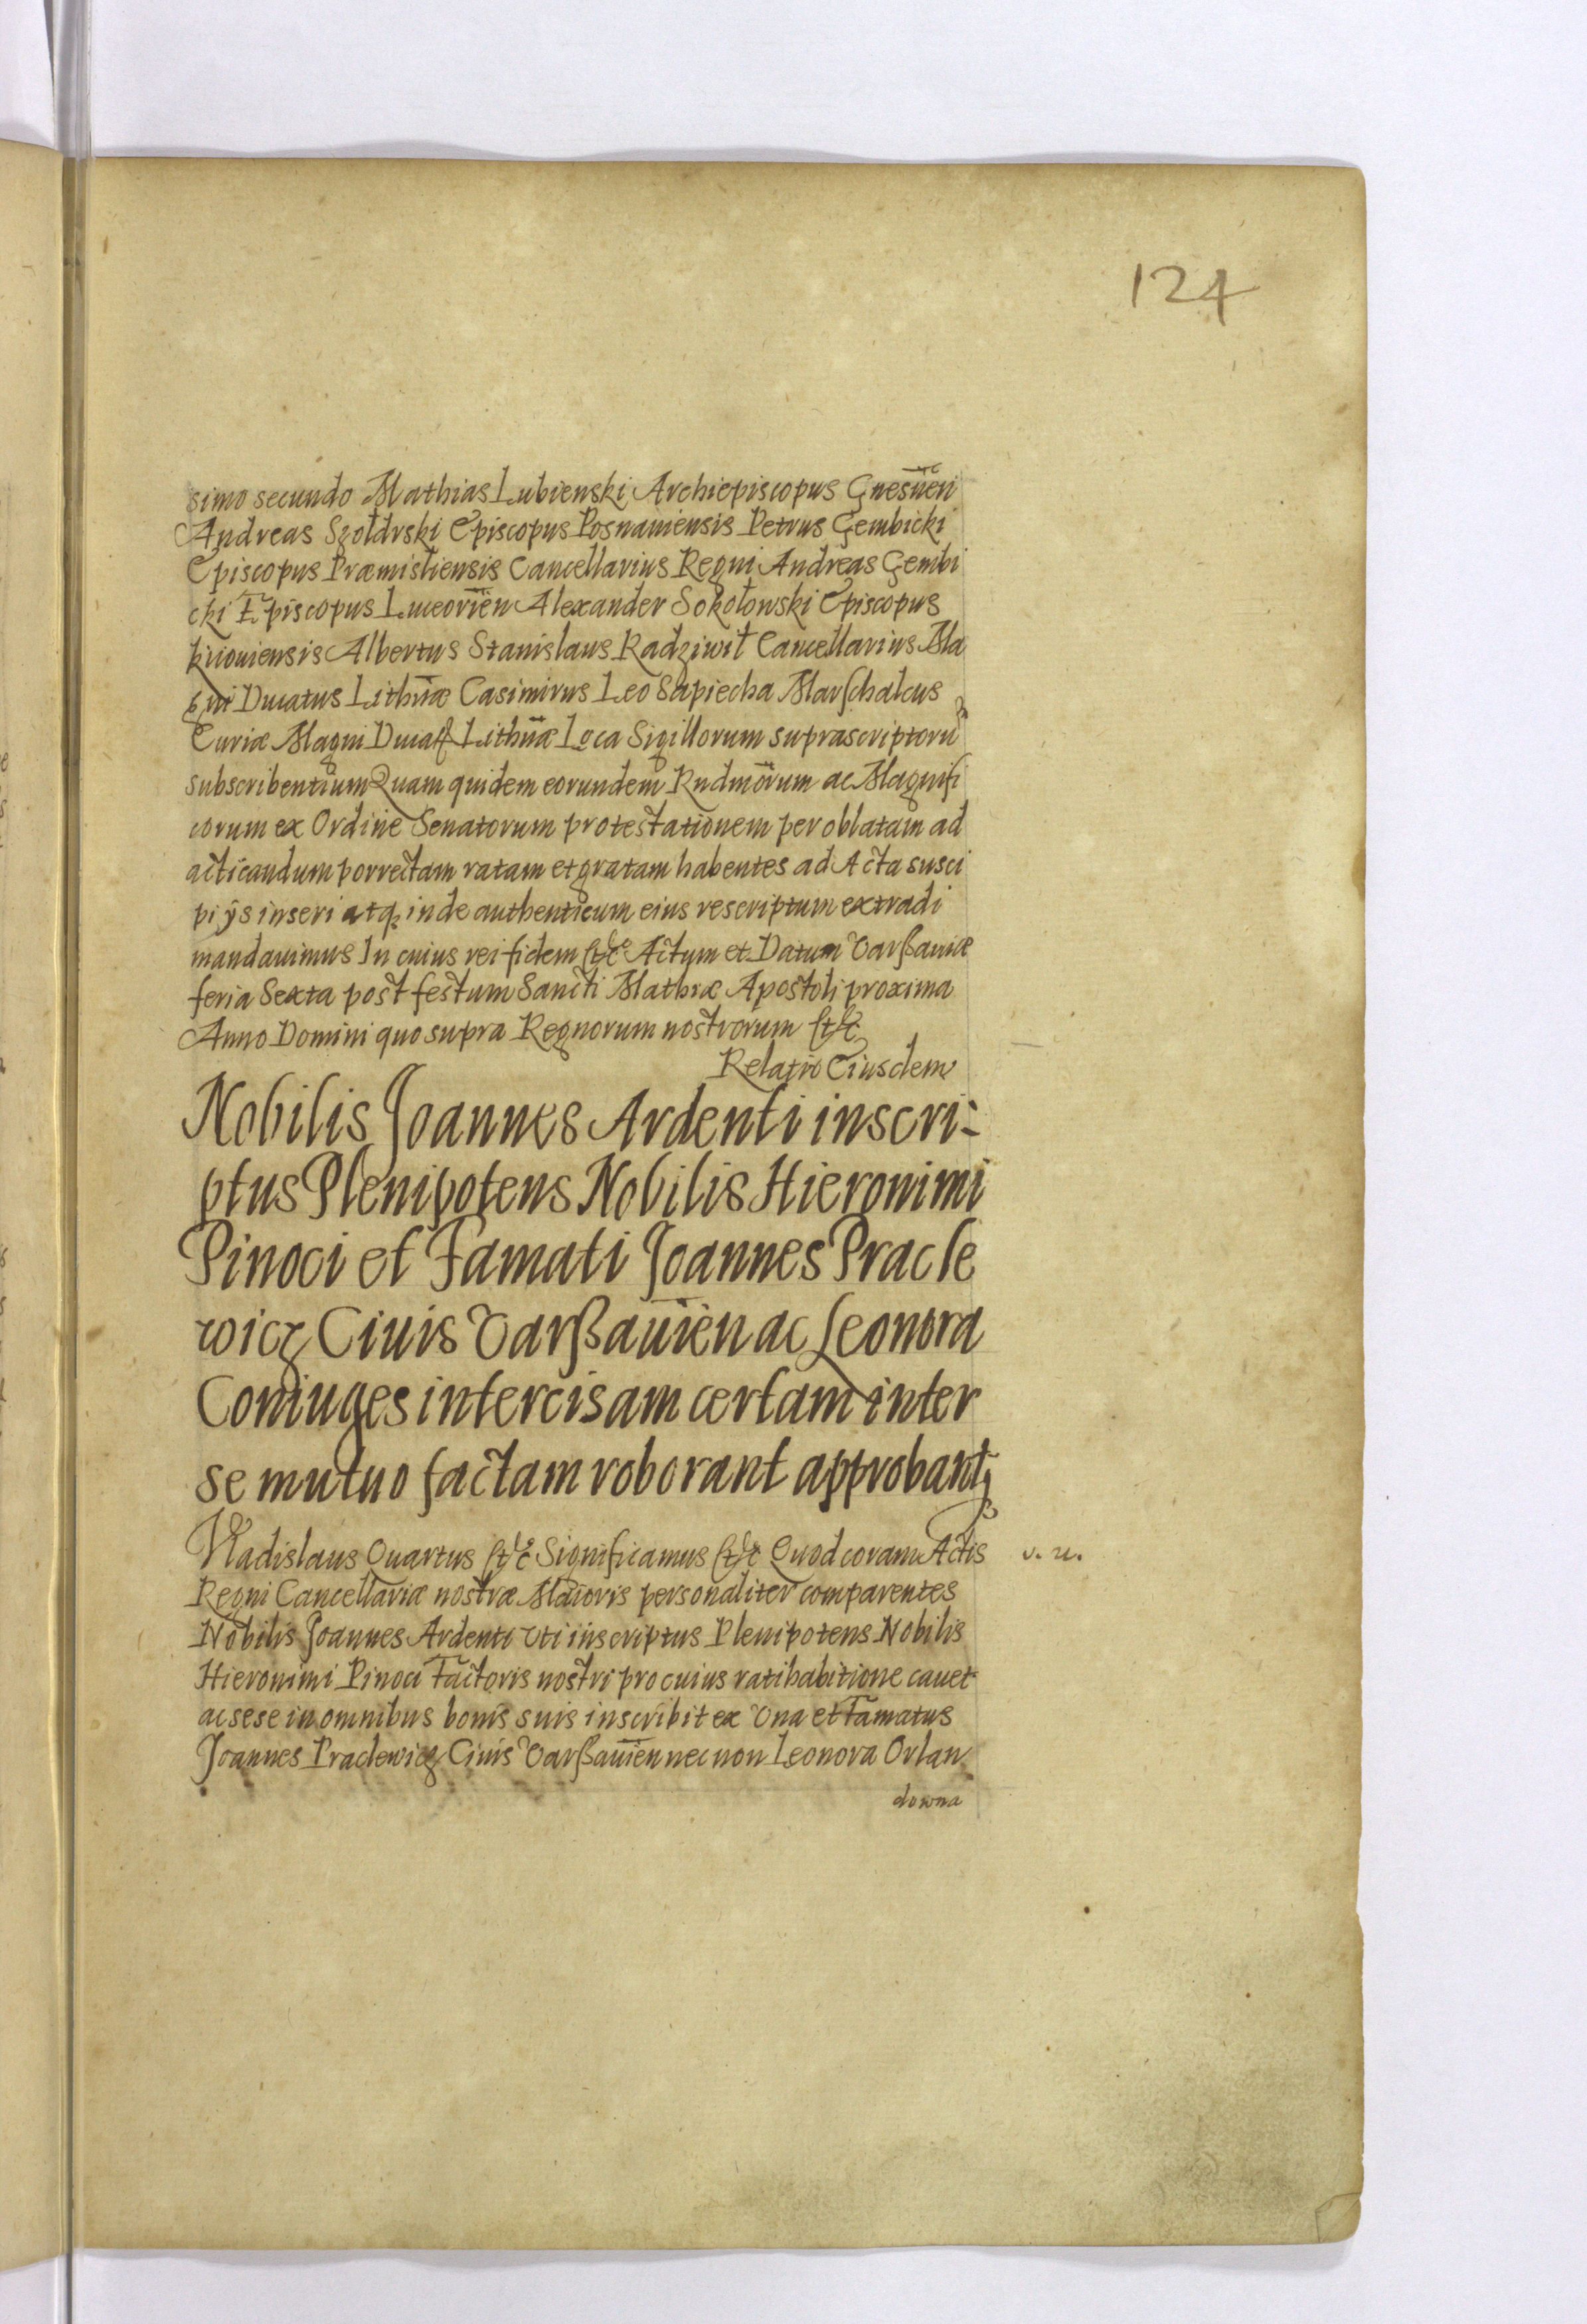 124
simo secundo Mathias Lubienski Archiepiscopus Gnesnen
Andreas Szołdrski Episcopus Posnaniensis Petrus Gembicki
Episcopus Præmisliensis Cancellarius Regni Andreas Gembi
cki Episcopus Luceorien Alexander Sokołowski Episcopus
kiiouiensis Albertus Stanislaus Radziwił Cancellarius Ma
gni Ducatus Lithuæ Casimirus Leo Sapiecha Marschalcus
Curiæ Magni Ducat Lithuæ Loca Sigillorum suprascriptoru
subscribentium Quam quidem eorundem Rndmorum ac Magnifi
corum ex Ordine Senatorum protestationem per oblatam ad
acticandum porrectam ratam et gratam habentes ad Acta susci
pi ijs inseri atq inde authenticum eius rescriptum extradi
mandauimus In cuius rei fidem etc Actum et Datum Varßauiæ
feria Sexta post festum Sancti Mathiæ Apostoli proxima
Anno Domini quo supra Regnorum nostrorum etc
Relatio Eiusdem
Nobilis Joannes Ardenti inscri-
ptus Plenipotens Nobilis Hieronimi
Pinoci et Famati Joannes Pracle
wicz Ciuis Varßauien ac Leonora
Coniuges intercisam certam inter
se mutuo factam roborant approbantq
Vladislaus Quartus etc Significamus etc Quod coram Actis v. u.
Regni Cancellariæ nostræ Maioris personaliter comparentes
Nobilis Joannes Ardenti vti inscriptus Plenipotens Nobilis
Hieronimi Pinoci Factoris nostri pro cuius ratihabitione cauet
ac sese in omnibus bonis suis inscribit ex vna et Famatus
Joannes Praclewicz Ciuis Varßauien nec non Leonora Orlan
downa